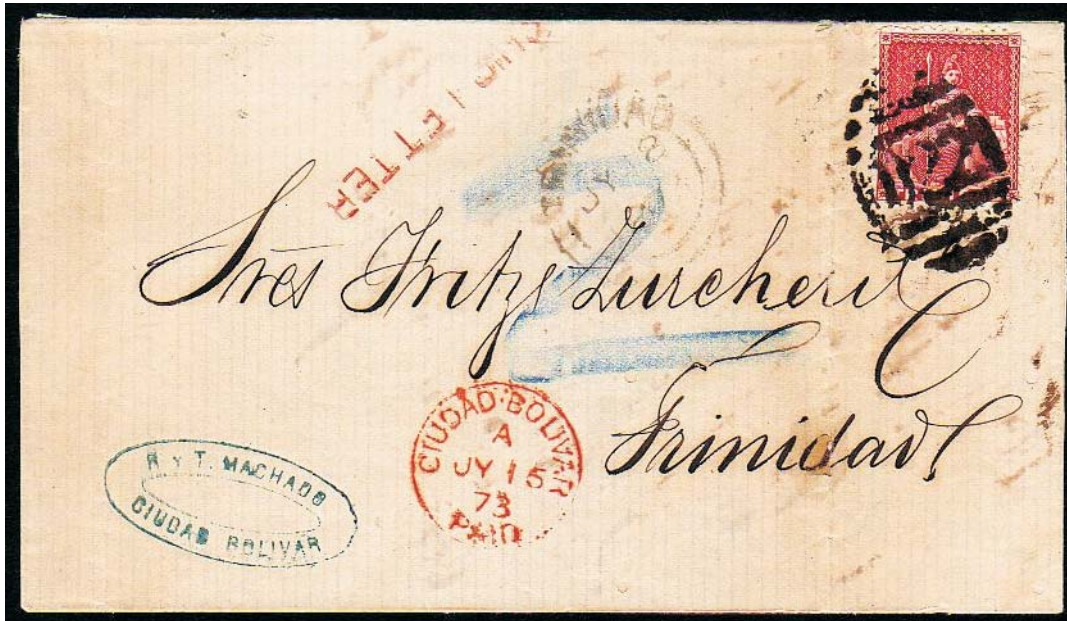 LETTER
TRINIDAD
JY
2
Sres Fritze Zurcher & C
Trinidad
CIUDAD-BOLIVAR
A
JY 15
73
PAID
R Y T. MACHADO
CIUDAD BOLIVAR